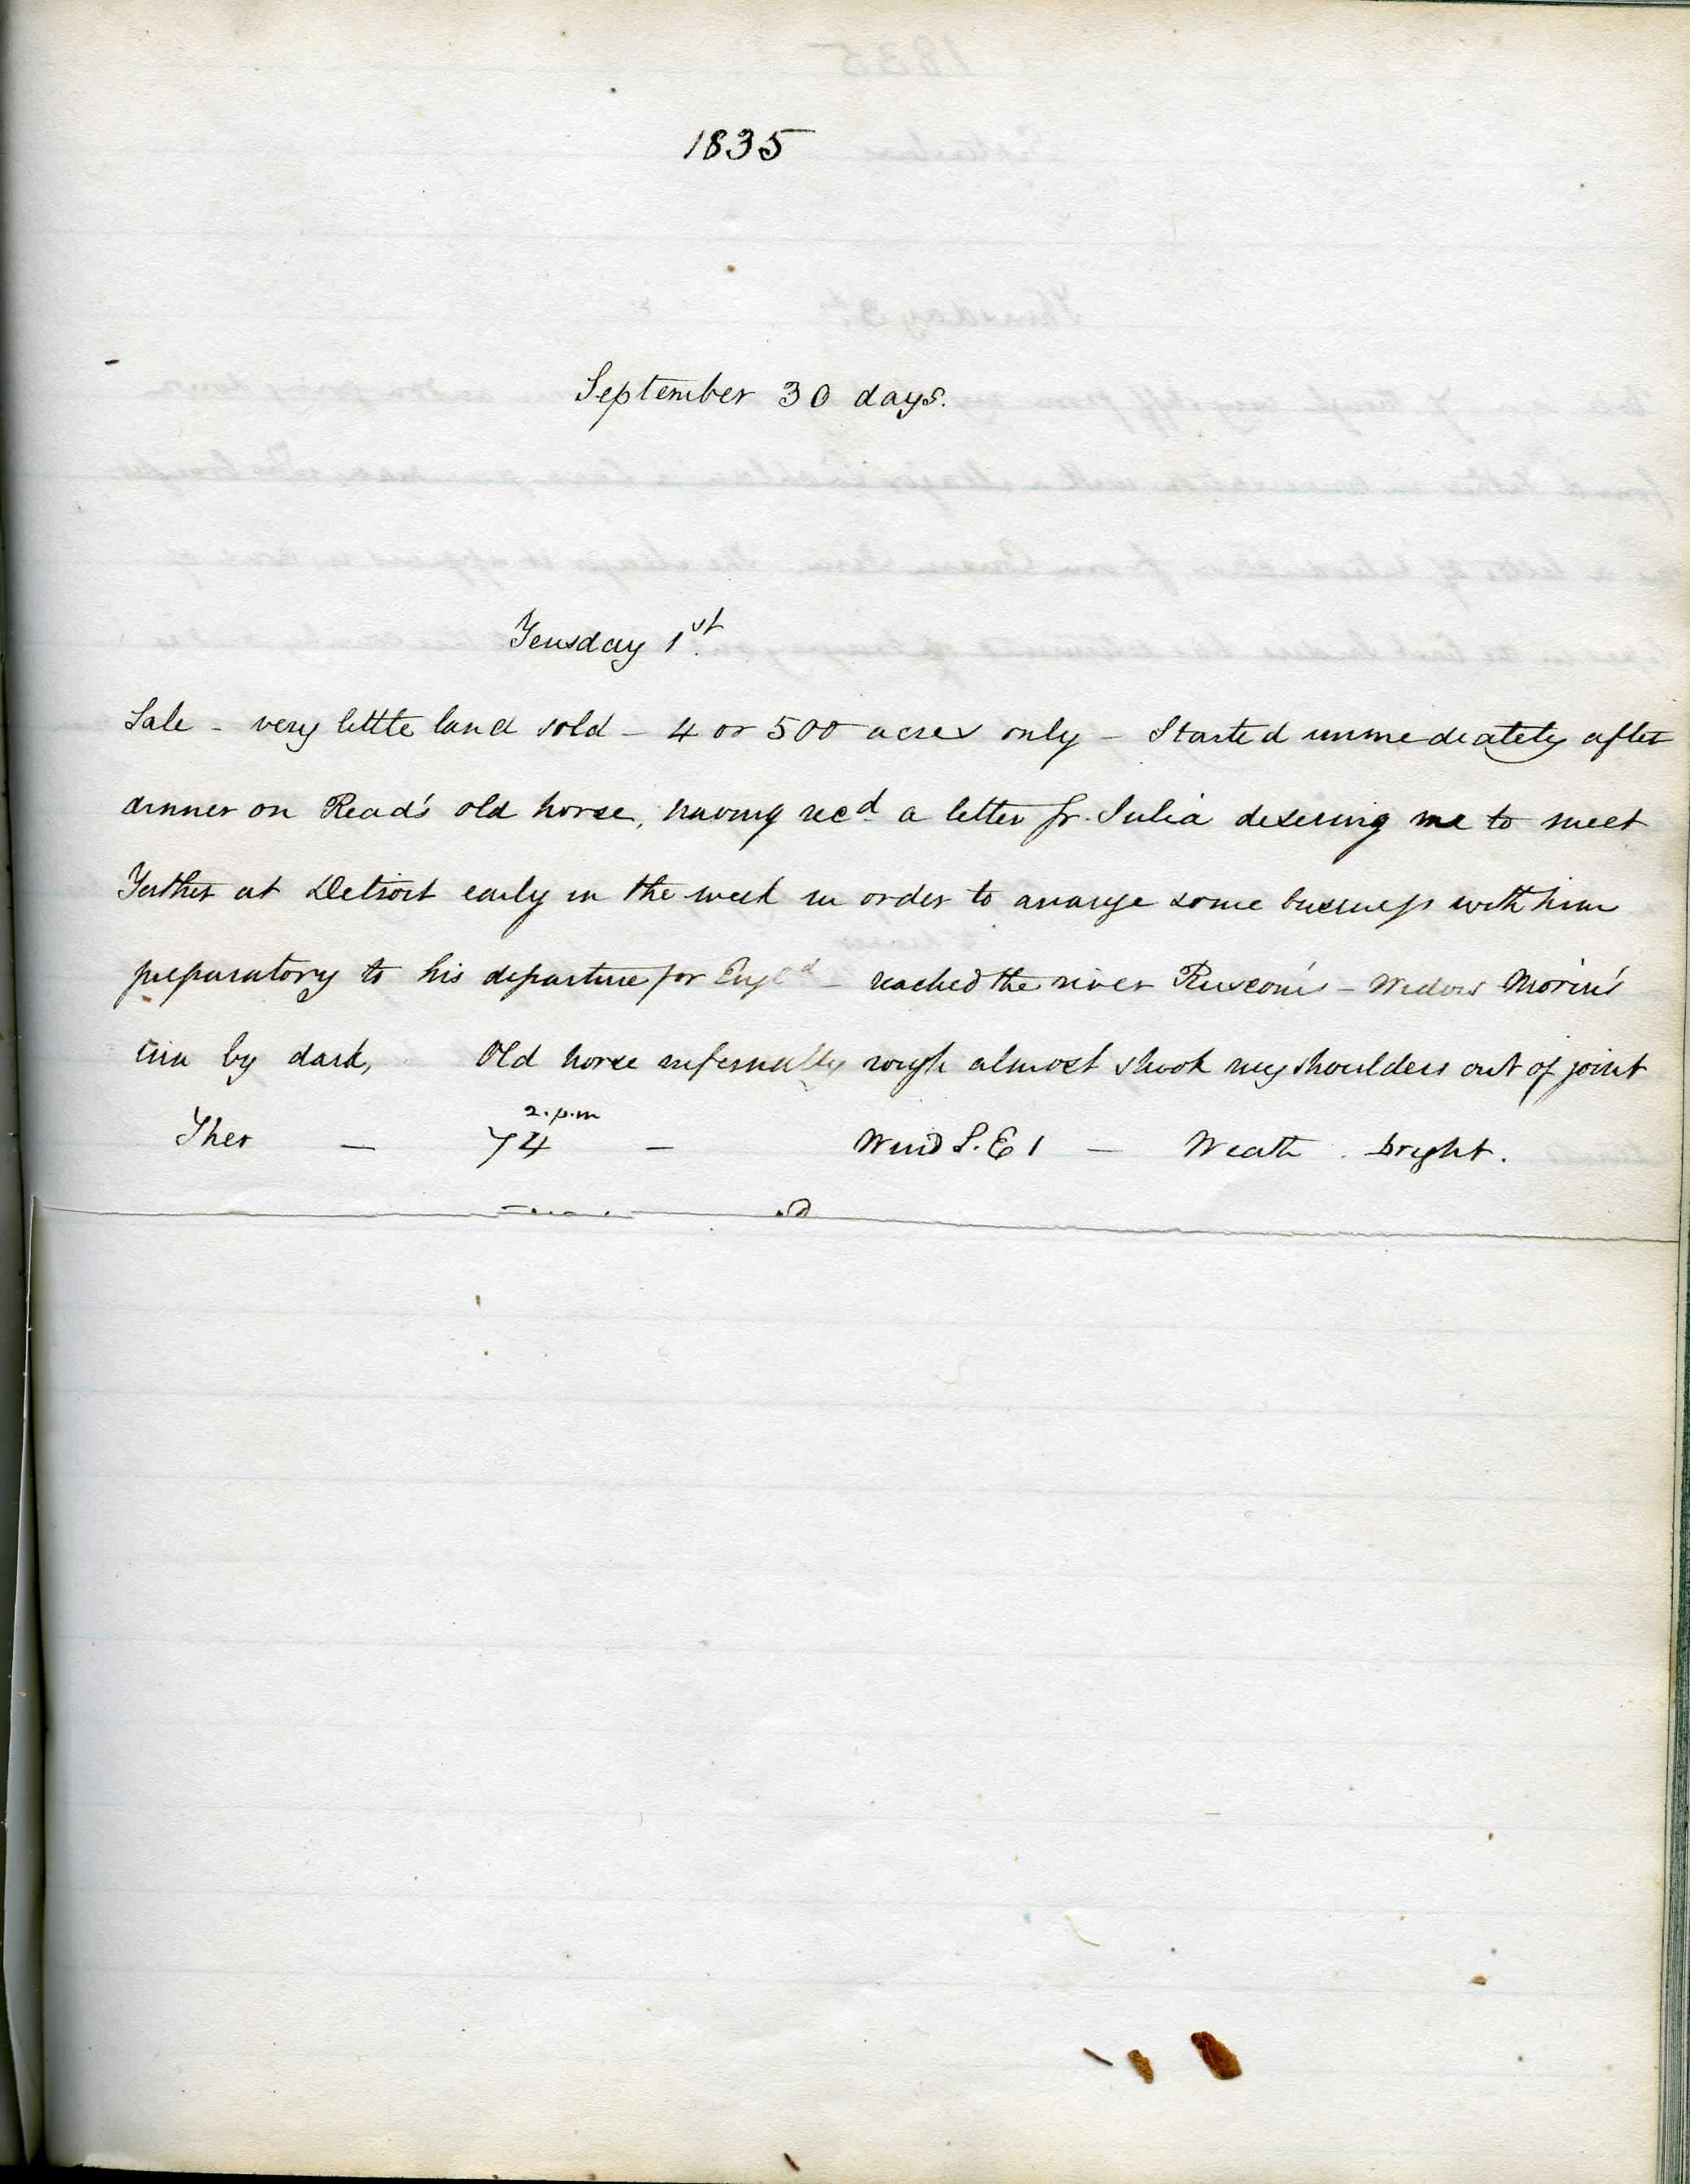 1835
September 30 days.
Teusday 1st.
Sale - very little land sold - 4 or 500 acres only - Started immediately after
dinner on Read's old horse, having recd a letter fr. Julia desering me to meet
Father at Detroit early in the week in order to arrange some business with him
preparatory to his departure for Engld - reached the river Ruscom's - Widow Morin's
inn by dark, Old horse infernally rough almost shook my shoulders out of joint
2. p.m
Ther - 74 - Wind S. E 1 - Weath. bright.